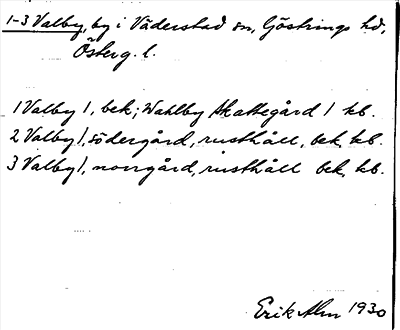 1-3 Valby, by i Väderstad sn, Göstrings hd,
Österg. l.
1 Valby 1, bek; Wahlby skattegård 1 kb.
2 Valby 1, södergård, rusthåll, bek, kb.
3 Valby 1, norrgård, rusthåll bek, kb.
Erik Alm 1930